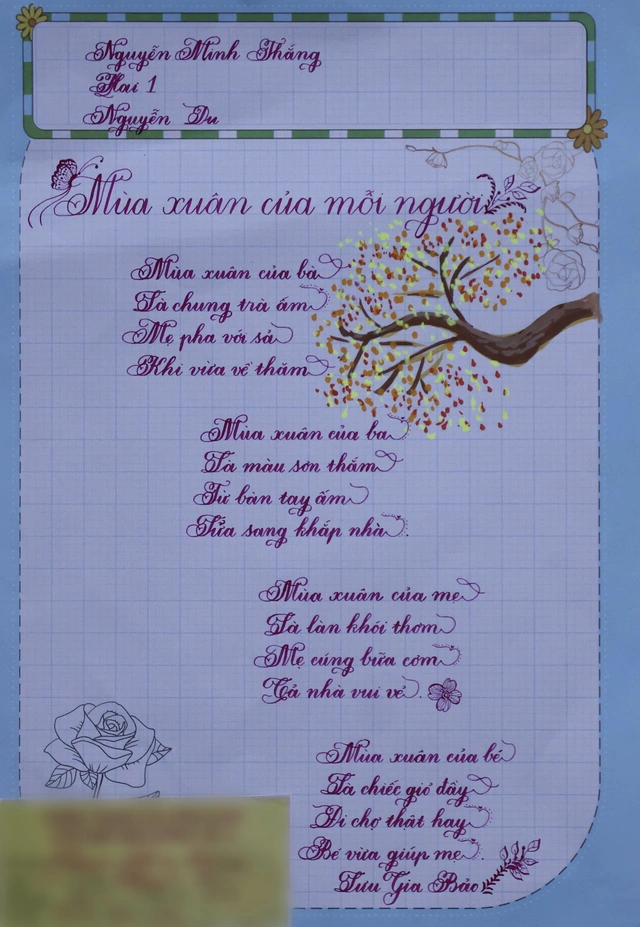 Nguyễn Minh Thắng
Hai 1
Nguyễn Du
Mùa xuân của mỗi người
Mùa xuân của bà
Là chung trà ấm
Mẹ pha với sả
Khi vừa về thăm
Mùa xuân của ba
Là màu sơn thắm
Từ bàn tay ấm
Sửa sang khắp nhà.
Mùa xuân của mẹ
Là làn khói thơm
Mẹ cúng bữa cơm
Cả nhà vui vẻ.
Mùa xuân của bé
Là chiếc giỏ đầy
Đi chợ thật hay
Bé vừa giúp mẹ.
Lưu Gia Bảo